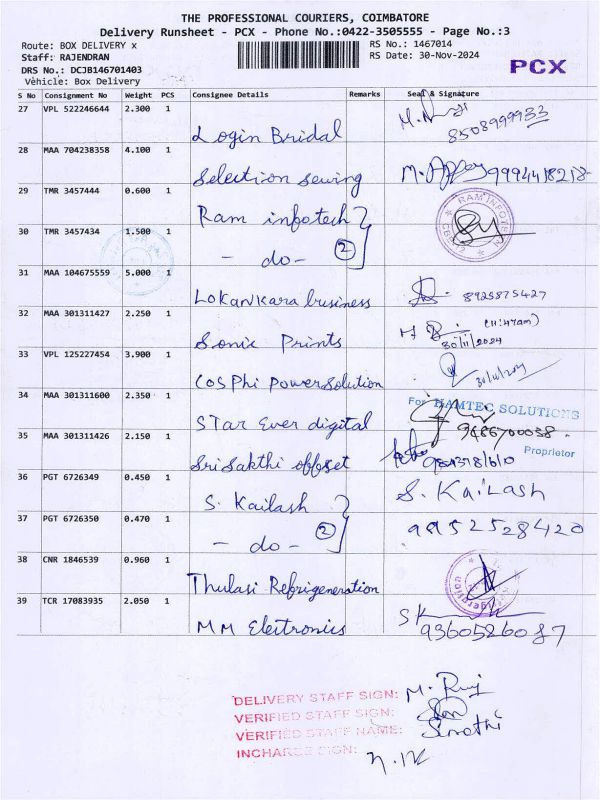 THE PROFESSIONAL COURIERS, COIMBATORE
Delivery Runsheet - PCX - Phone No.:0422-3505555 - Page No.:3
Route: BOX DELIVERY x
RS No.: 1467014
Staff: RAJENDRAN
RS Date: 30-Nov-2024
DRS No.: DCJB146701403
PCX
Vehicle: Box Delivery
S No Consignment No Weight PCS Consignee Details Remarks Seal & Signature
27 VPL 522246644 2.300 1
Login Bridal 8508999933
28 MAA 704238358 4.100 1
Selection sewing 9994418218
29 TMR 3457444 0.600 1
Ram infotech RAM INFOTECH
30 TMR 3457434 1.500 1
- do - 2
31 MAA 104675559 5.000 1
Lokankara business 8925875427
32 MAA 301311427 2.250 1
Sonic Prints (11:47am)
30/11/2024
33 VPL 125227454 3.900 1
Cosphi Powersolution 30/11/2024
34 MAA 301311600 2.350 1
For HAMTEC SOLUTIONS
Star Ever digital 9486700038
35 MAA 301311426 2.150 1
Proprietor
Sri Sakthi offset
36 PGT 6726349 0.450 1
S. Kailash S. Kailash
37 PGT 6726350 0.470 1
- do - 2 9952528420
38 CNR 1846539 0.960 1
Thulasi Refrigeneration
39 TCR 17083935 2.050 1
MM Electronics 9360526087
DELIVERY STAFF SIGN:
VERIFIED STAFF SIGN:
VERIFIED STAFF NAME:
INCHARGE SIGN: